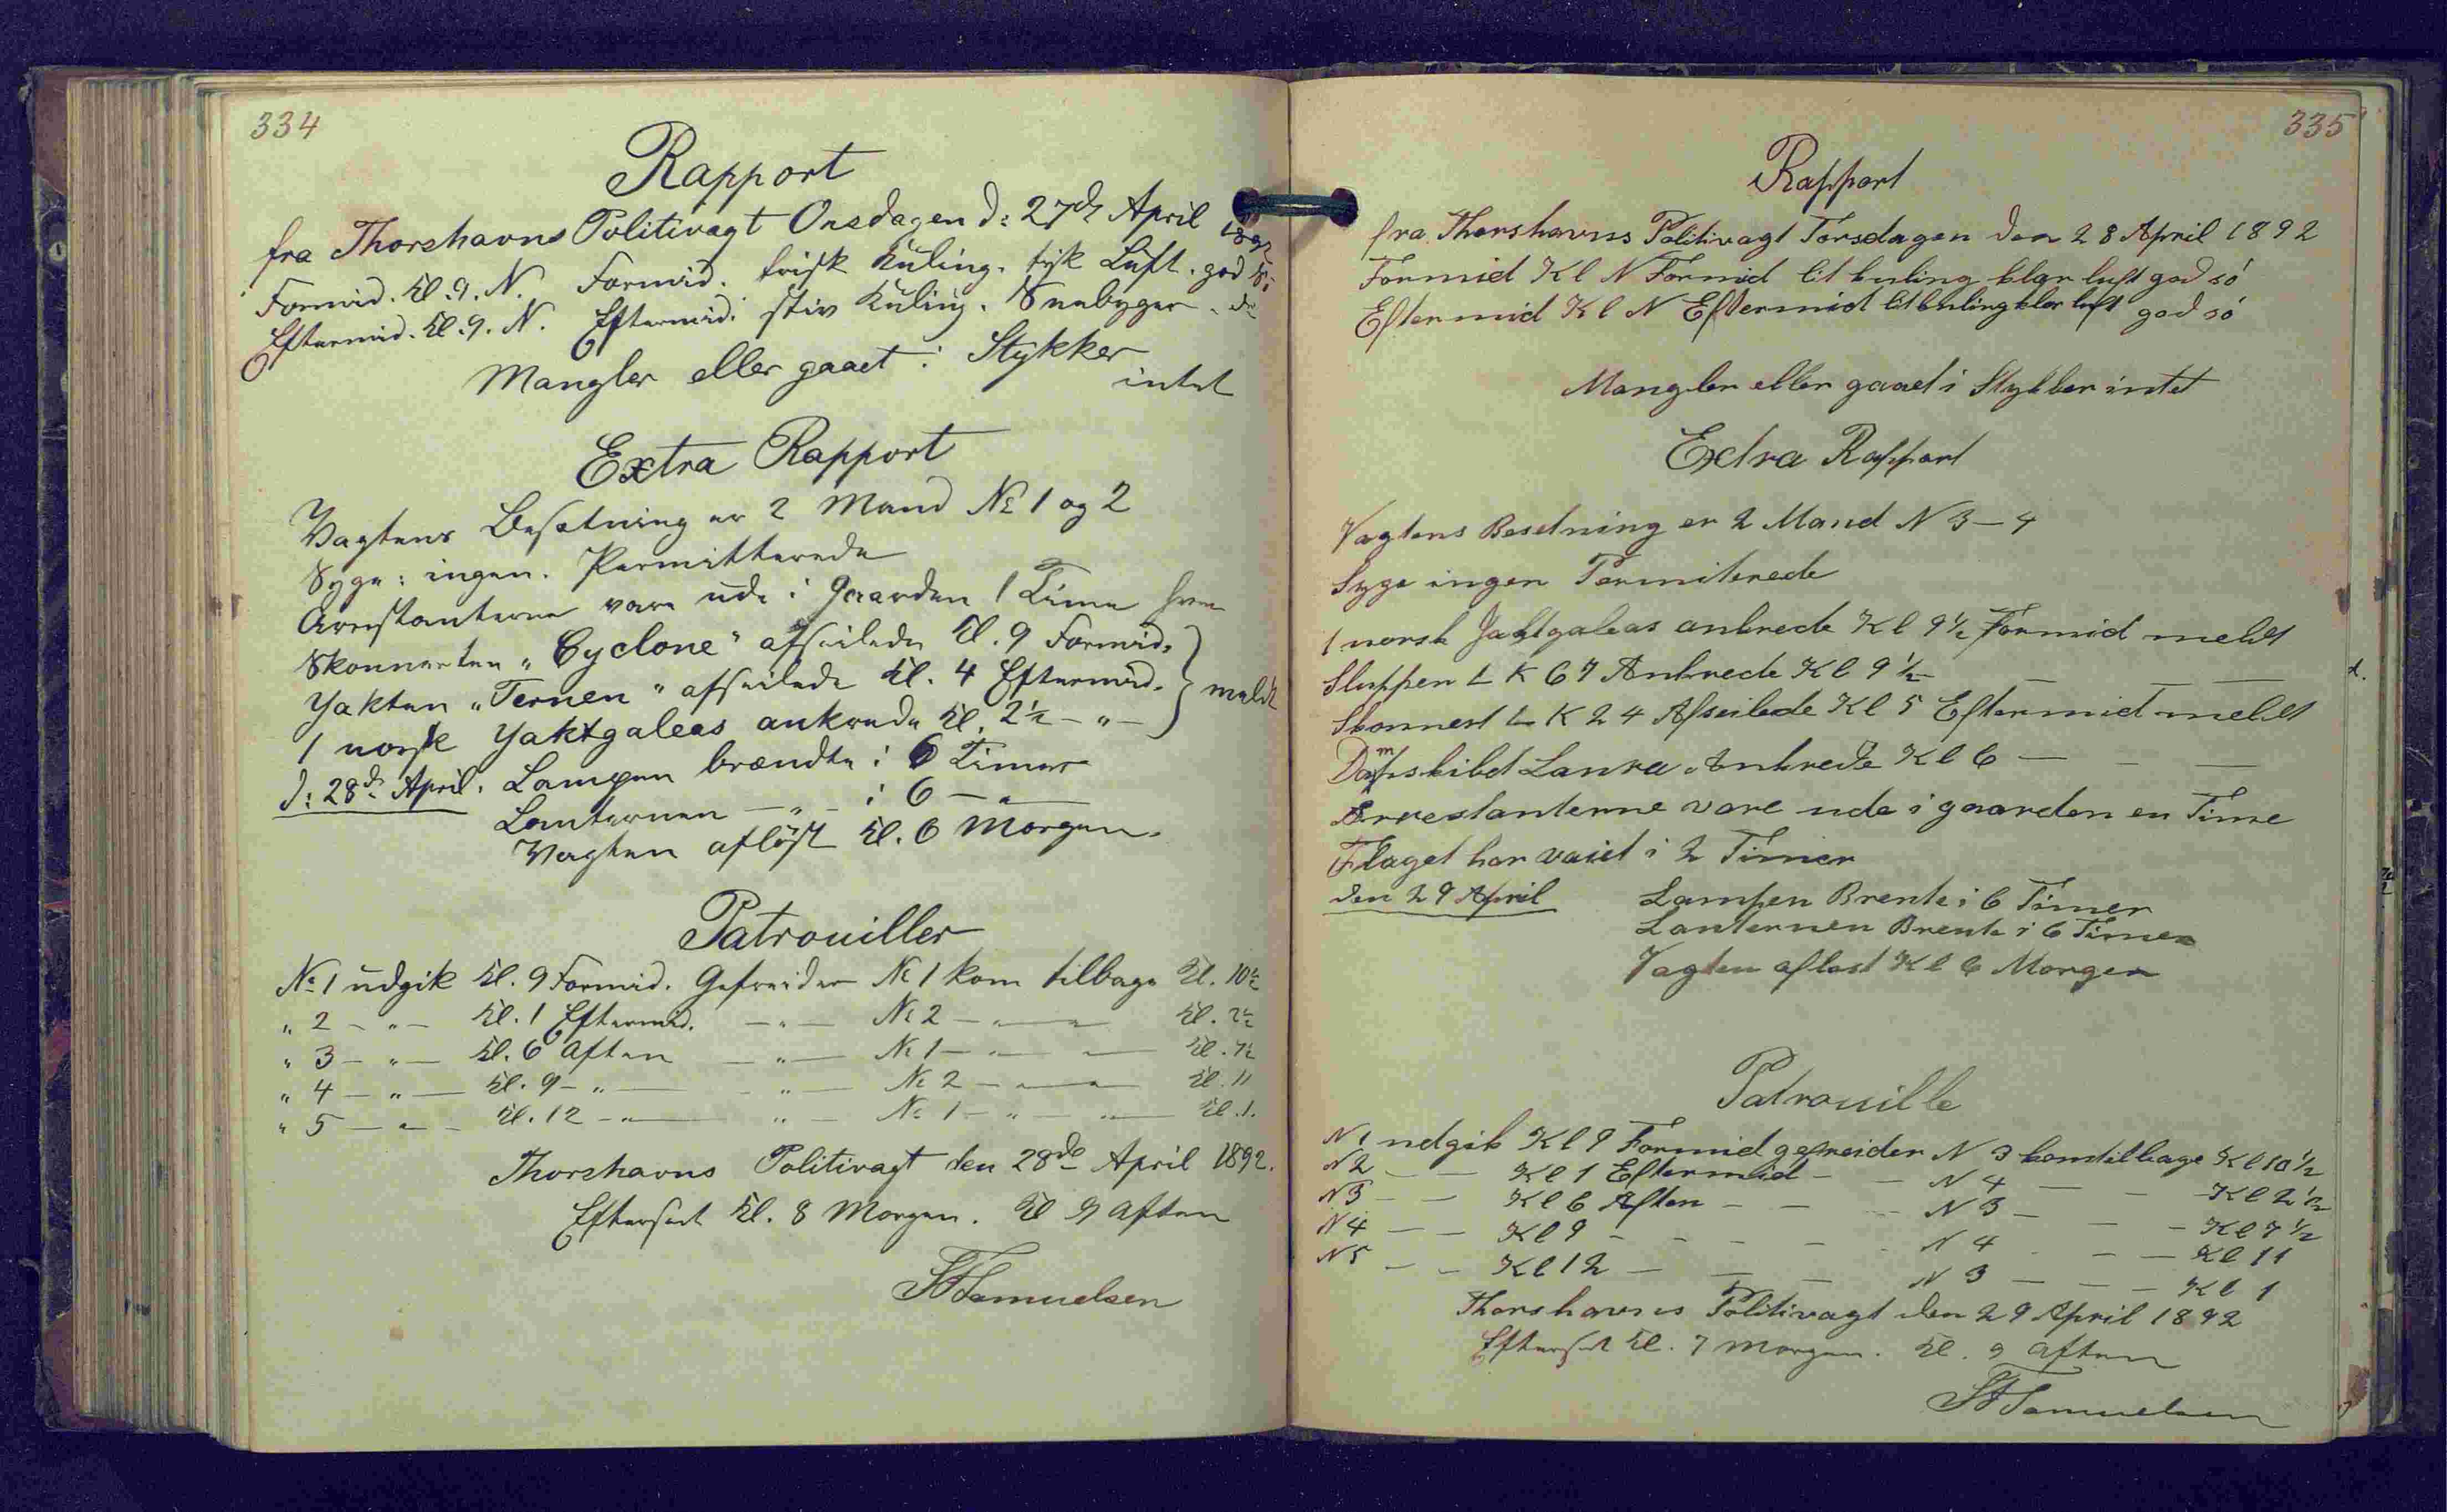 334
Rapport
fra Thorshavns Politivagt Onsdagen d: 27de April 1892
Formid. Kl. 9. N. Formid. frisk Kuling. tyk Luft. god Sö
Eftermid. Kl. 9. N. Eftermid. stiv Kuling. Snebyger. do
Mangler eller gaaet i Stykker
intet
Extra Rapport
Vagtens Besætning er 2 Mand No 1 og 2
Syge: ingen. Permitterede
Arrestanterne vare ude i Gaarden 1 Time
Skonnerten "Cyclone" afseilede Kl. 9 Formid.
Yakten "Ternen" afseilede Kl. 4 Eftermid. } meldt
1 norsk Yaktgaleas ankrede Kl. 2½ — " —
d: 28de April. Lampen brændte i 6 Timer
Lanternen — " — i 6 — " —
Vagten aflöst Kl. 6 Morgen.
Patrouiller
No 1 udgik Kl. 9 Formid. Gefreider No 1 kom tilbage Kl. 10½
" 2 — " — Kl. 1 Eftermid. — " — No 2 — " — " — Kl. 2½
" 3 — " — Kl. 6 Aften — " — No 1 — " — " — Kl. 7½
" 4 — " — Kl. 9 — " — — " — No 2 — " — " — Kl. 11
" 5 — " — Kl. 12 — " — — " — No 1 — " — " — Kl. 1.
Thorshavns Politivagt den 28de April 1892.
Efterseet Kl. 8 Morgen. Kl 9 Aften
Samuelsen
335
Rapport
fra Thorshavns Politivagt Torsdagen den 28 April 1892
Formid Kl N Formid lit kuling klar luft god sö
Eftermid Kl N Eftermid lit kuling klar luft god sö
Mangler eller gaaet i Stykker intet
Extra Rapport
Vagtens Besetning er 2 Mand N 3 — 4
Syge ingen Permiterede
1 norsk Jaktgaleas ankrede Kl 9½ Formid meldt
Sluppen L K 67 Ankrede Kl 9½ — — —
Skonnest L K 24 Afseilede Kl 5 Eftermid meldt
Dampskibd Laura Ankrede Kl 6 — — —
Arrestanterne vare ude i gaarden en Time
Flaget har vaiet i 2 Timer
den 29 April Lampen Brente i 6 Timer
Lanternen Brente i 6 Timer
Vagten aflöst Kl 6 Morgen
Patrouille
N 1 udgik Kl 9 Formid gefreider N 3 kom tilbage Kl 10½
N 2 — — Kl 1 Eftermid — — N 4 — — Kl 2½
N 3 — — Kl 6 Aften — — N 3 — — Kl 7½
N 4 — — Kl 9 — — — N 4 — — Kl 11
N 5 — — Kl 12 — — — N 3 — — Kl 1
Thorshavns Politivagt den 29 April 1892
Efterset Kl. 7 Morgen. Kl. 9 Aften
Samuelsen